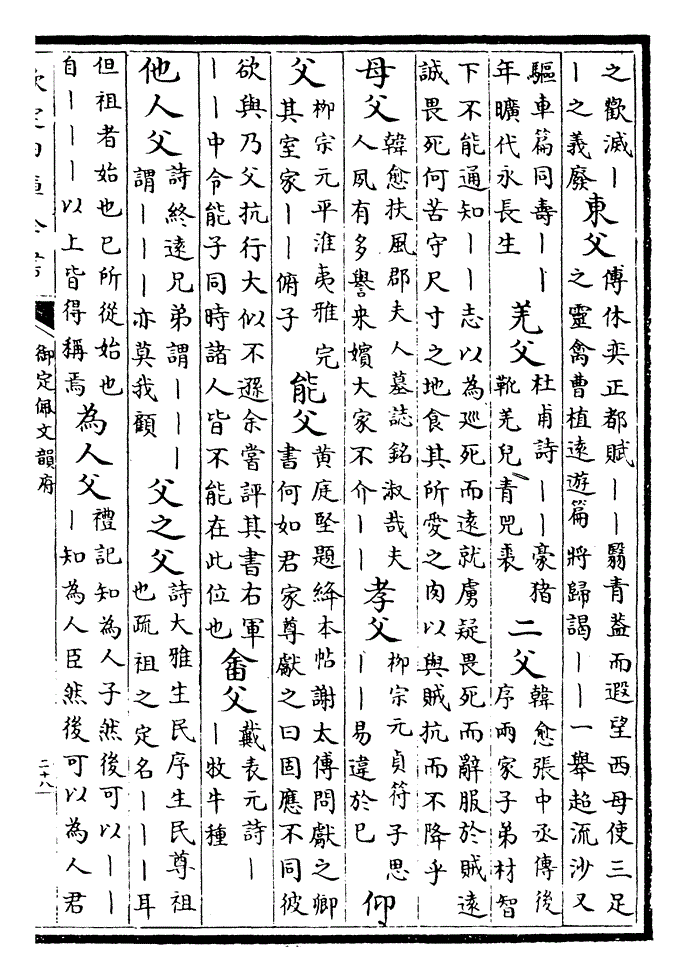 之歡滅丨
丨之義廢
東父
傅休奕正都賦丨丨翳青葢而遐望西母使三足
之靈禽曹植遠遊篇將歸謁丨丨一舉超流沙又
驅車篇同壽丨丨
年曠代永長生
羌父
杜甫詩丨丨豪豬
靴羌兒青兕裘
二父
韓愈張中丞傳後
序兩家子弟材智
下不能通知丨丨志以為廵死而遠就虜疑畏死而辭服於賊遠
誠畏死何苦守尺寸之地食其所愛之肉以與賊抗而不降乎
母父
韓愈扶風郡夫人墓誌銘淑哉夫
人夙有多譽来嬪大家不介丨丨
孝父
柳宗元貞符子思
丨丨易違於已
仰父
柳宗元平淮夷雅完
其室家丨丨俯子
能父
黄庭堅題絳本帖謝太傅問獻之卿
書何如君家尊獻之曰固應不同彼
欲與乃父抗行大似不遜余嘗評其書右軍
丨丨中令能子同時諸人皆不能在此位也
畬父
戴表元詩丨
丨牧牛種
他人父
詩終遠兄弟謂丨丨丨
謂丨丨丨亦莫我顧
父之父
詩大雅生民序生民尊祖
也疏祖之定名丨丨丨耳
但祖者始也已所從始也
自丨丨丨以上皆得稱焉
為人父
禮記知為人子然後可以丨丨
丨知為人臣然後可以為人君
欽定四庫全書
御定佩文韻府
二十八